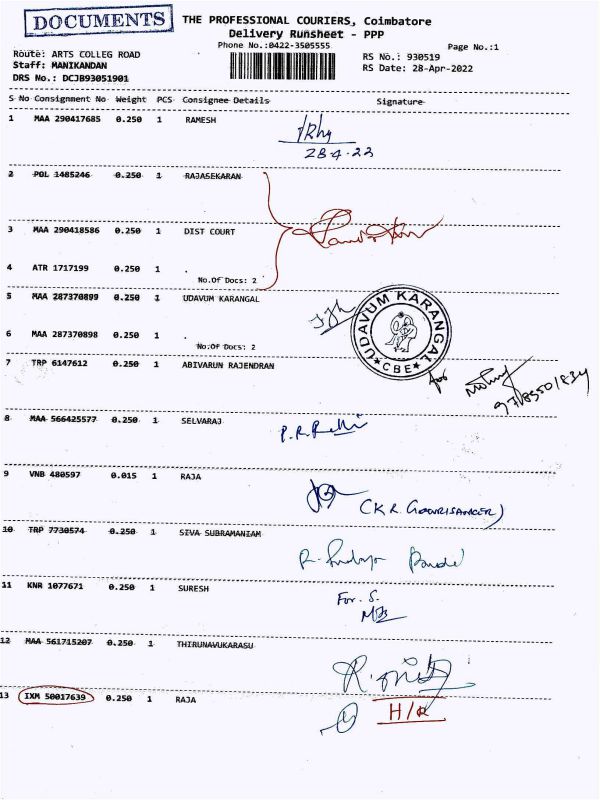 DOCUMENTS
THE PROFESSIONAL COURIERS, Coimbatore
Delivery Runsheet - PPP
Phone No.:0422-3505555
Page No.:1
Route: ARTS COLLEG ROAD
Staff: MANIKANDAN
DRS No.: DCJB93051901
RS No.: 930519
RS Date: 28-Apr-2022
S No Consignment No Weight PCS Consignee Details Signature
1 MAA 290417685 0.250 1 RAMESH
28.4.22
2 POL 1485246 0.250 1 RAJASEKARAN
3 MAA 290418586 0.250 1 DIST COURT
4 ATR 1717199 0.250 1 .
No.Of Docs: 2
5 MAA 287370899 0.250 1 UDAVUM KARANGAL
UDAVUM KARANGAL
CBE
6 MAA 287370898 0.250 1 .
No.Of Docs: 2
7 TRP 6147612 0.250 1 ABIVARUN RAJENDRAN
for
8 MAA 566425577 0.250 1 SELVARAJ
9 VNB 480597 0.015 1 RAJA
(K R. GOWRISANKER)
10 TRP 7730574 0.250 1 SIVA SUBRAMANIAM
11 KNR 1077671 0.250 1 SURESH
For. S.
12 MAA 561715207 0.250 1 THIRUNAVUKARASU
13 IXM 50017639 0.250 1 RAJA
H/R